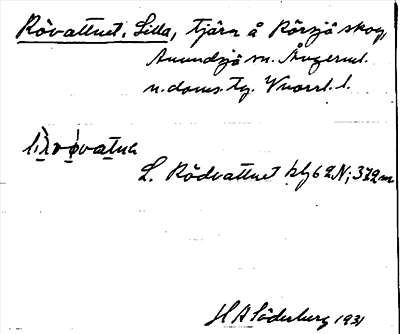 Rövattnet, Lilla, tjärn å Rörsjö skog,
Anundsjö sn. Ångerml.
n. doms. tg. Vnorrl. l.
L. Rödvattnet kbl 62N; 372 m
H A Söderberg 1931